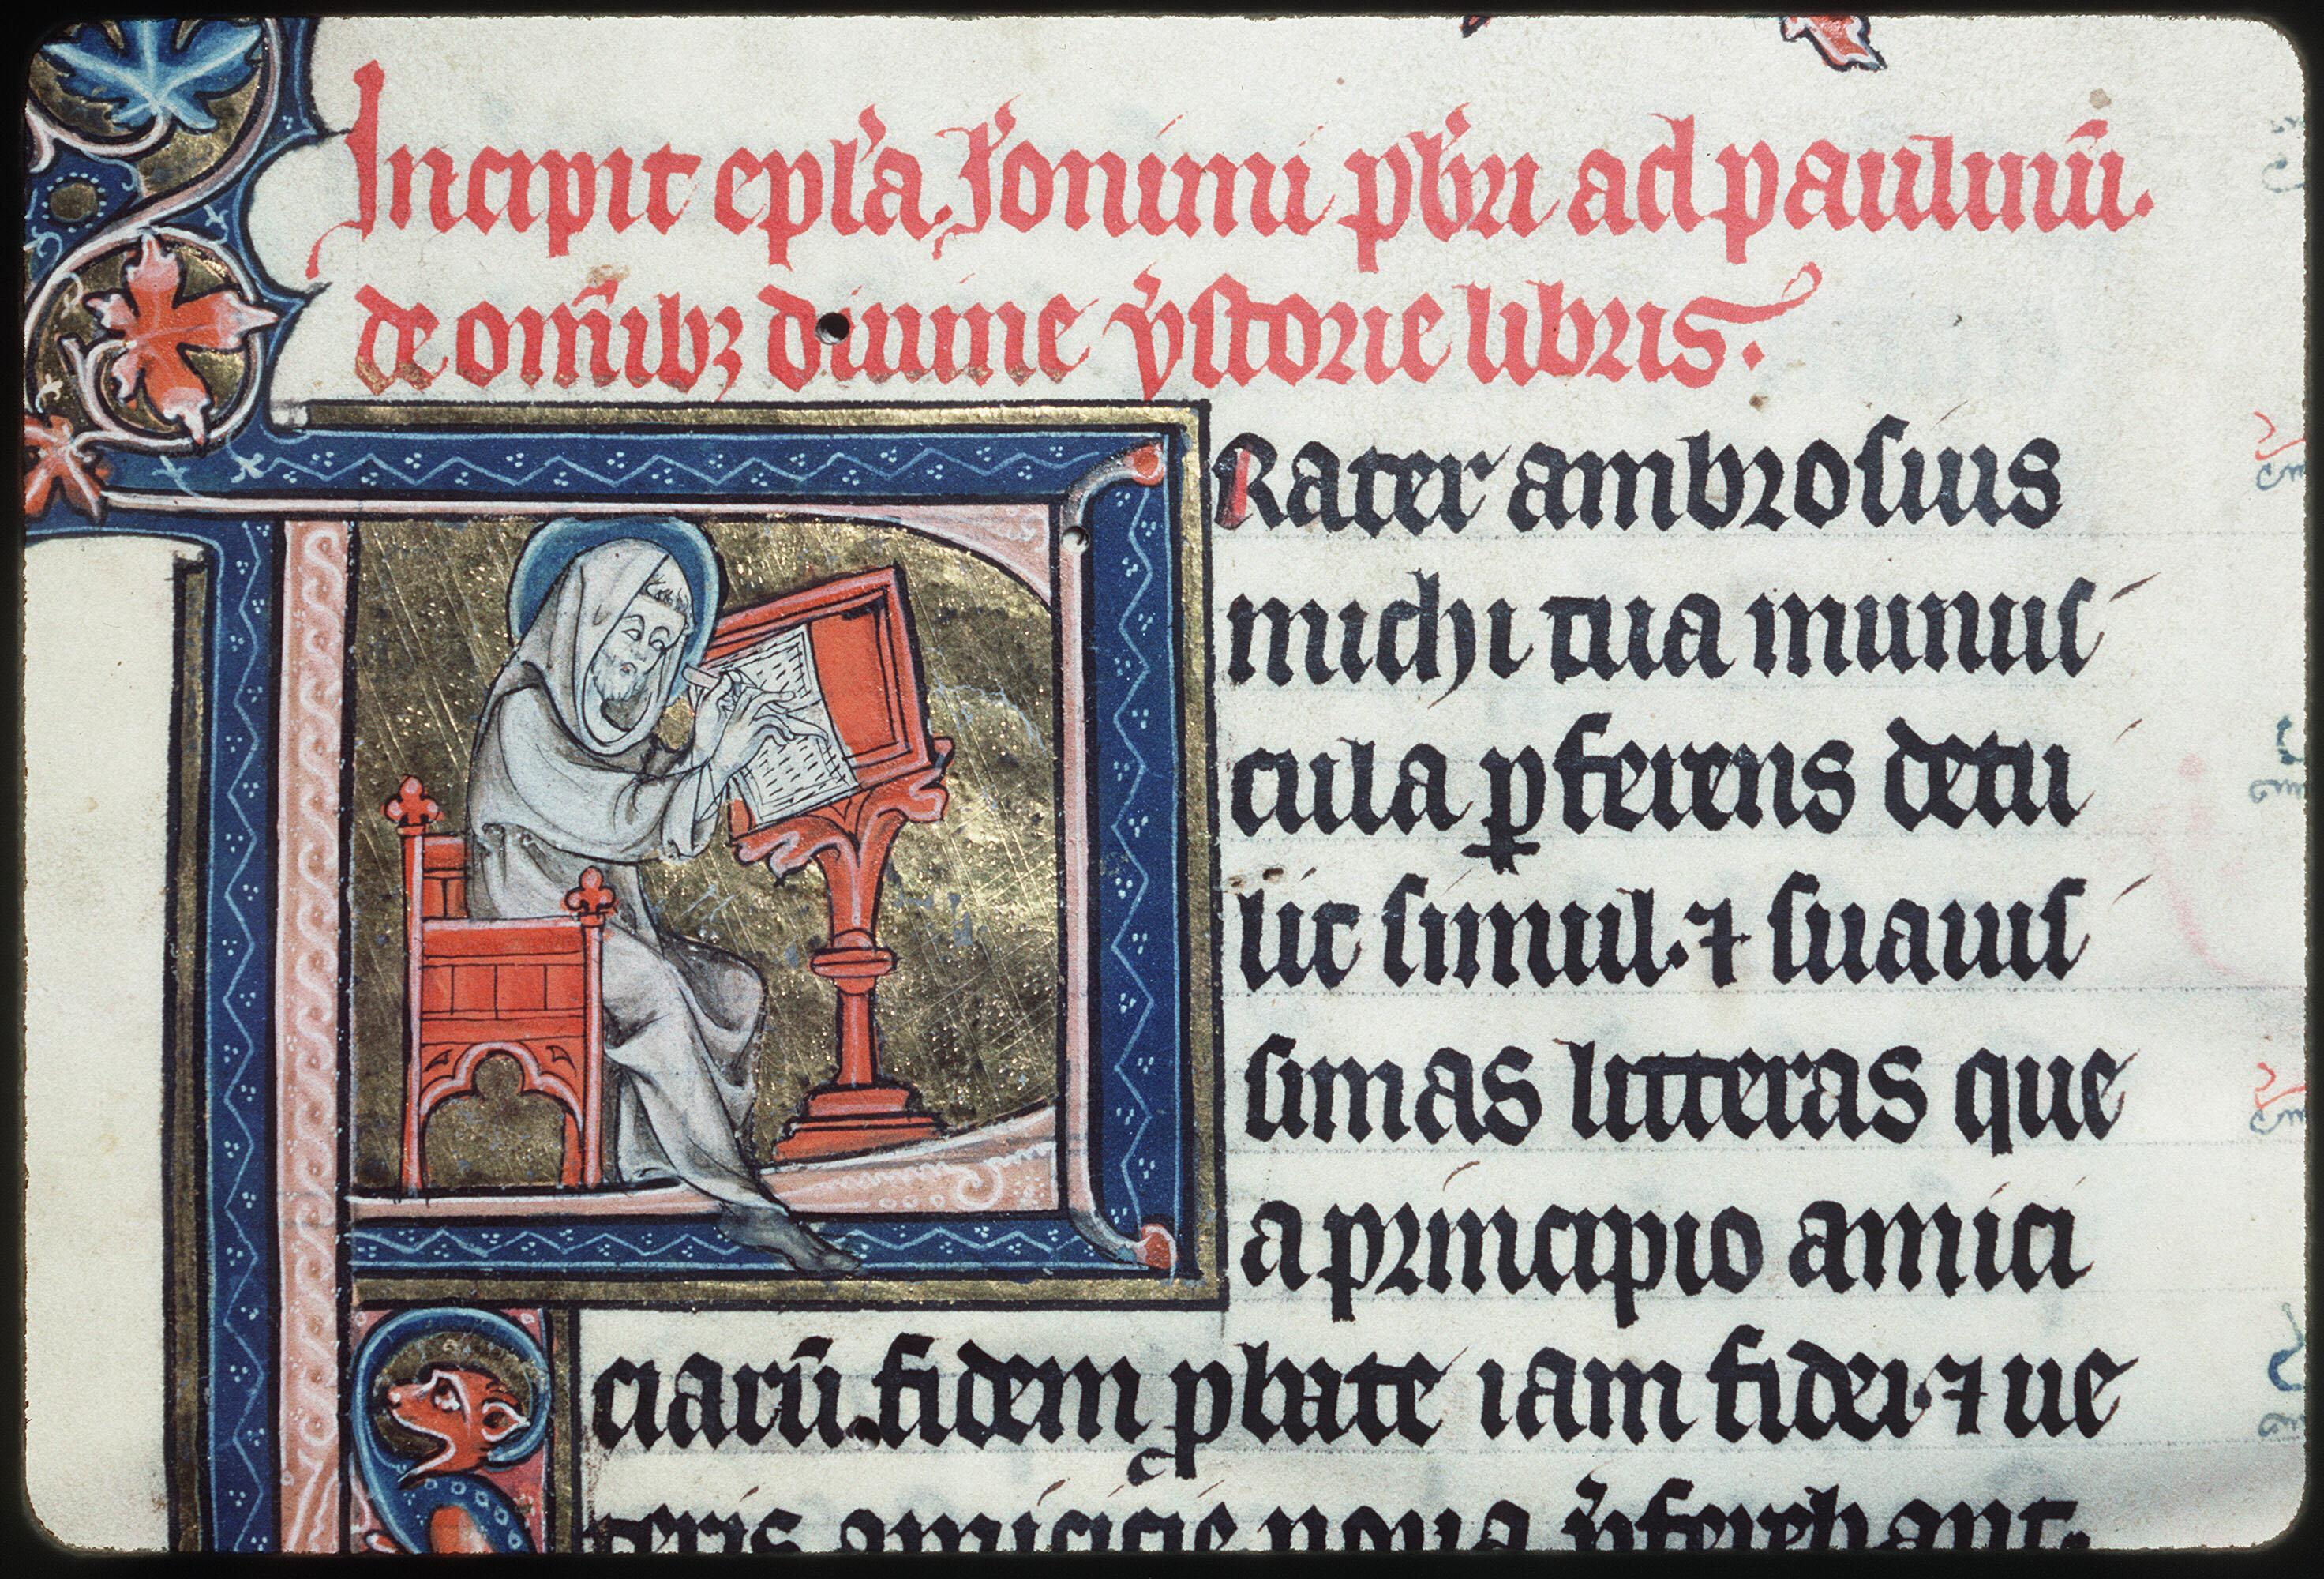 Incipit ep̅la. Ieronimi pb̅ri ad paulinu̅.
de om̅ibꝫ diuine ẏstorie libris.
FRater ambrosius
michi tua munus
cula ꝑferens detu
lit simul. ⁊ suauis
simas litteras que
a principio amici
ciaru̅. fidem ꝓbate iam fidei. ⁊ ue
teris amicicie noua p̅ferebant.